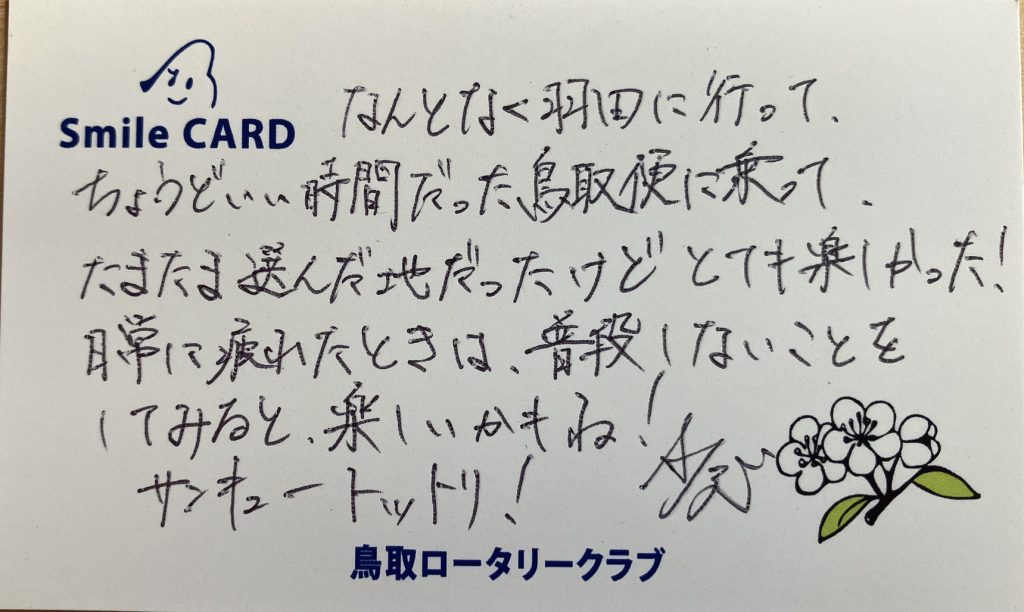 Smile CARD
なんとなく羽田に行って、
ちょうどいい時間だった鳥取便に乗って、
たまたま選んだ地だったけどとても楽しかった!
日常に疲れたときは、普段しないことを
してみると、楽しいかもね!
サンキュートットリ!
鳥取ロータリークラブ